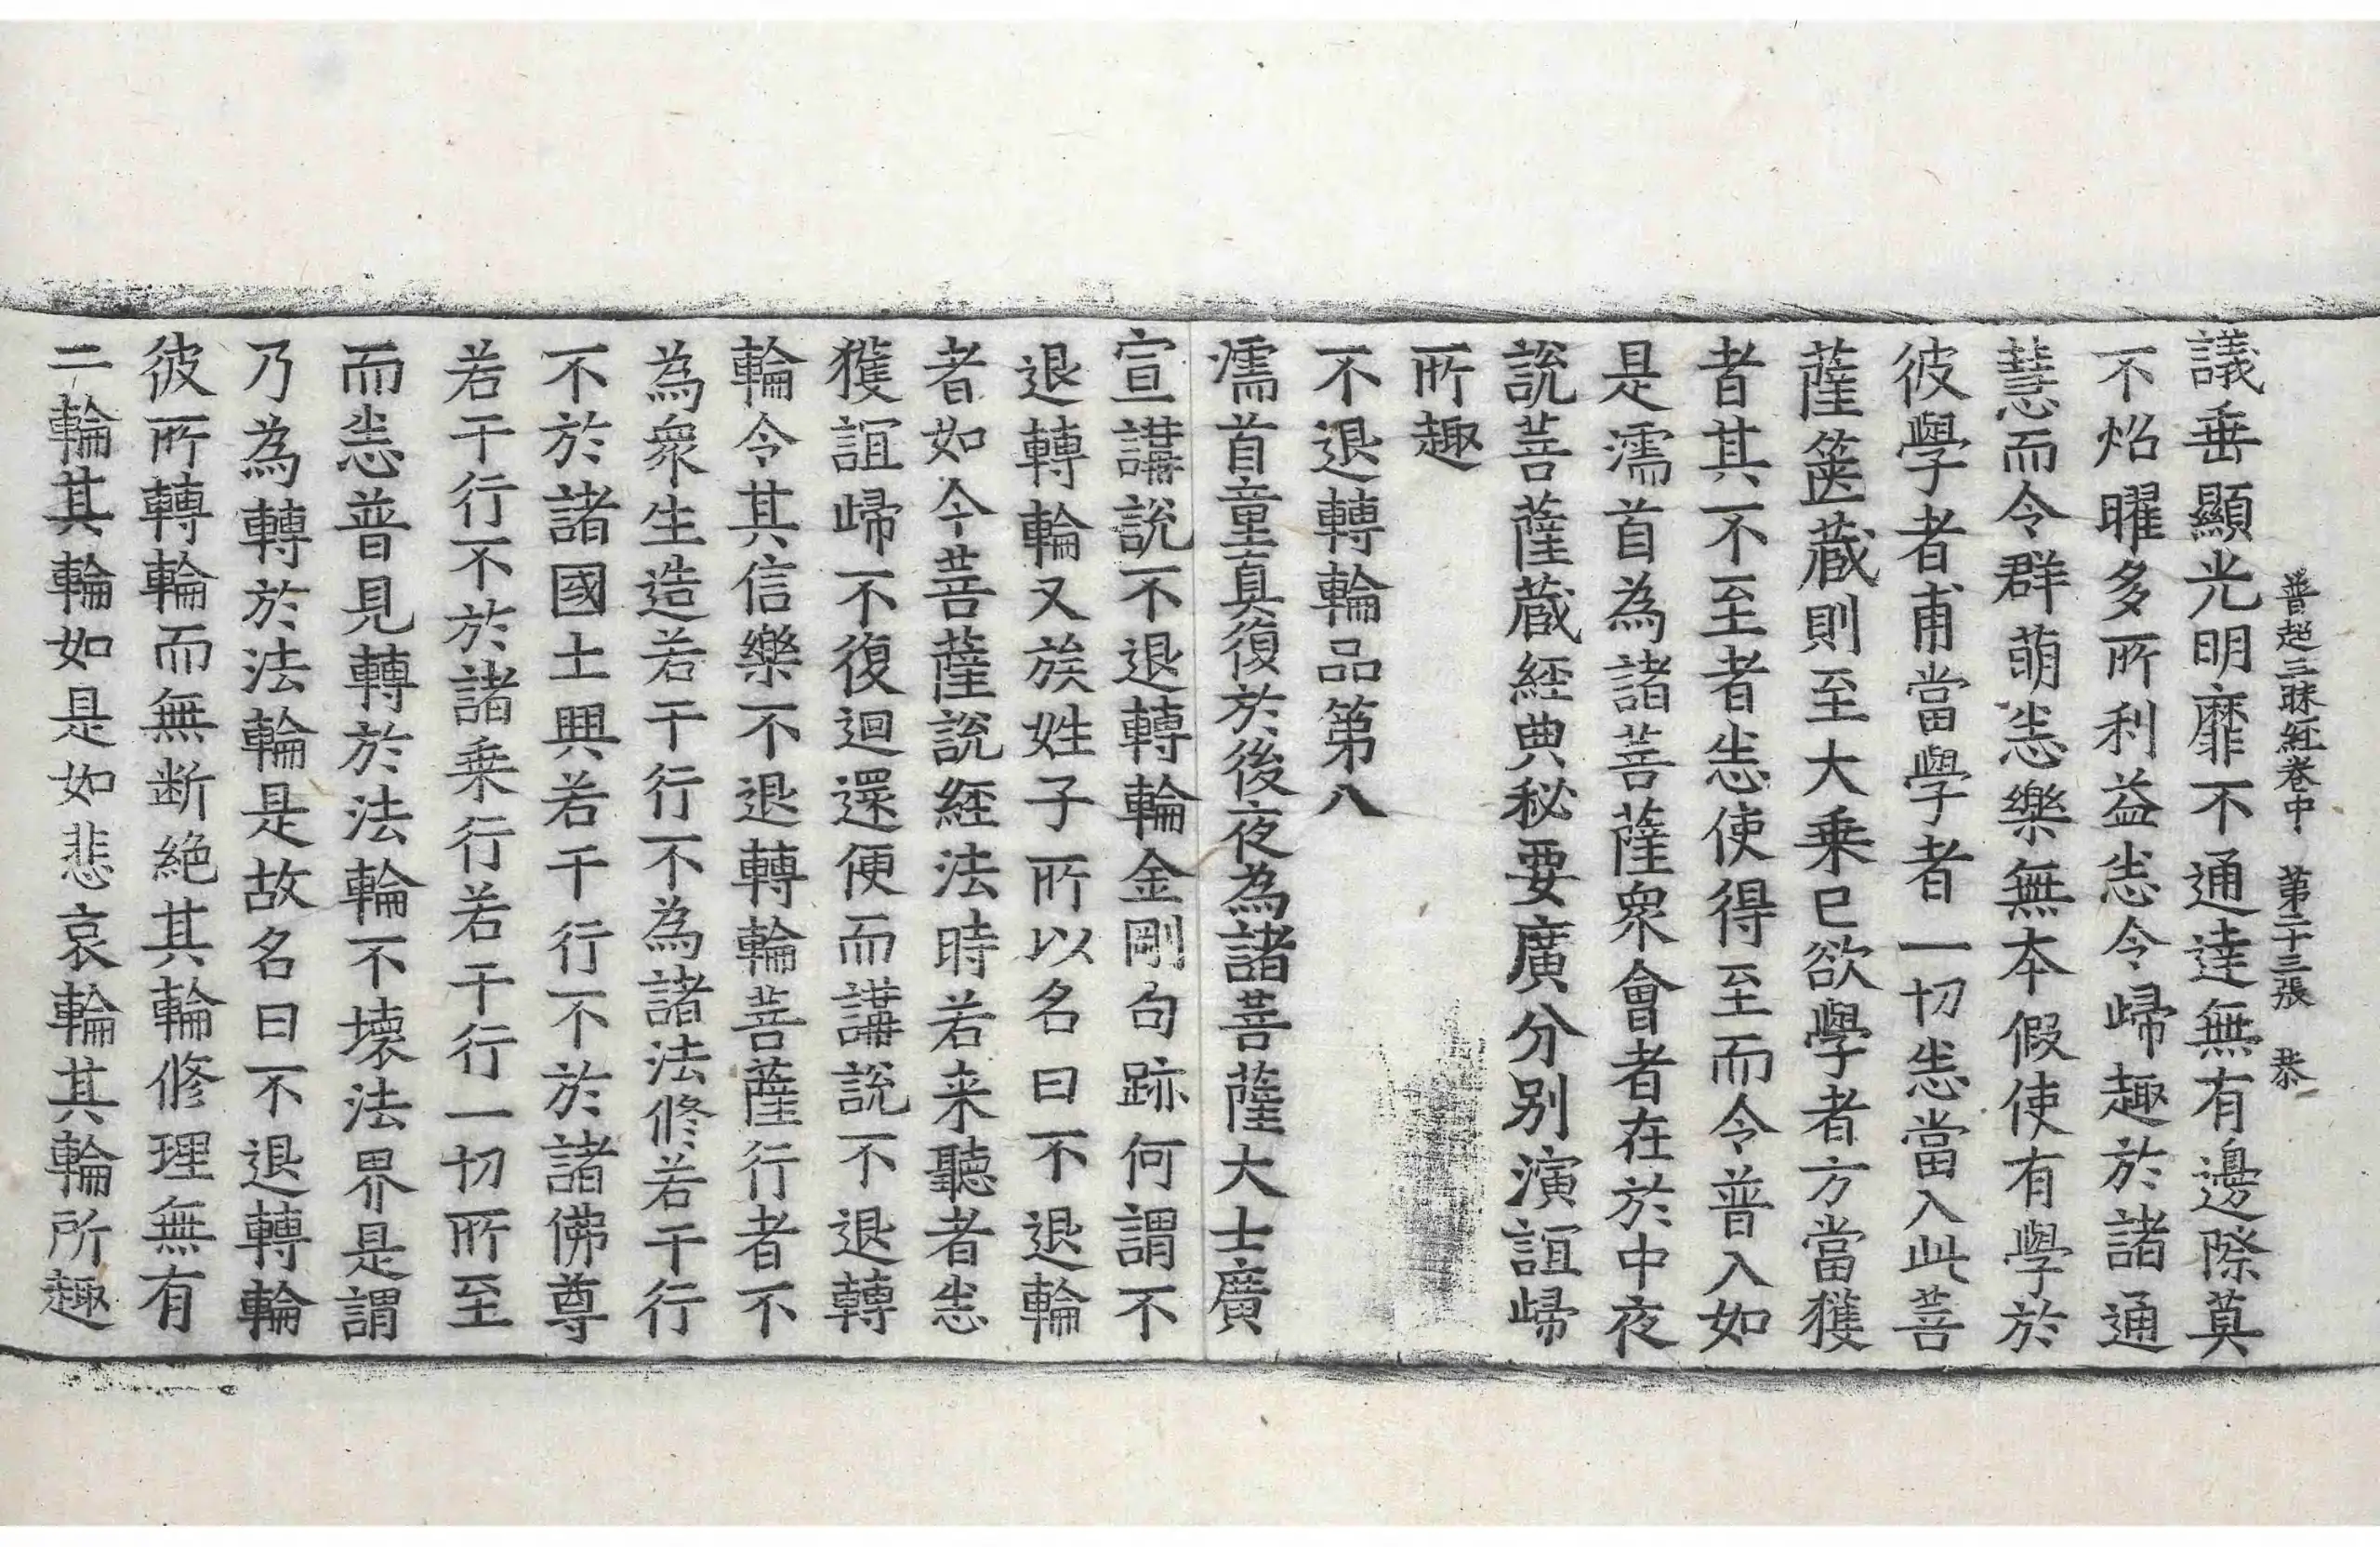 普超三昧經卷中 第二十三張 恭
議垂顯光明靡不通達無有邊際莫
不炤曜多所利益悉令歸趣於諸通
慧而令群萌悉樂無本假使有學於
彼學者甫當學者一切悉當入此菩
薩篋藏則至大乗已欲學者方當獲
者其不至者悉使得至而令普入如
是濡首為諸菩薩衆會者在於中夜
說菩薩藏經典秘要廣分別演誼歸
所趣
不退轉輪品第八
濡首童真復於後夜為諸菩薩大士廣
宣講說不退轉輪金剛句跡何謂不
退轉輪又族姓子所以名曰不退輪
者如今菩薩說經法時若来聽者悉
獲誼歸不復迴還便而講說不退轉
輪令其信樂不退轉輪菩薩行者不
為衆生造若干行不為諸法修若干行
不於諸國土興若干行不於諸佛尊
若干行不於諸乗行若干行一切所至
而悉普見轉於法輪不壞法界是謂
乃為轉於法輪是故名曰不退轉輪
彼所轉輪而無断絕其輪修理無有
二輪其輪如是如悲哀輪其輪所趣